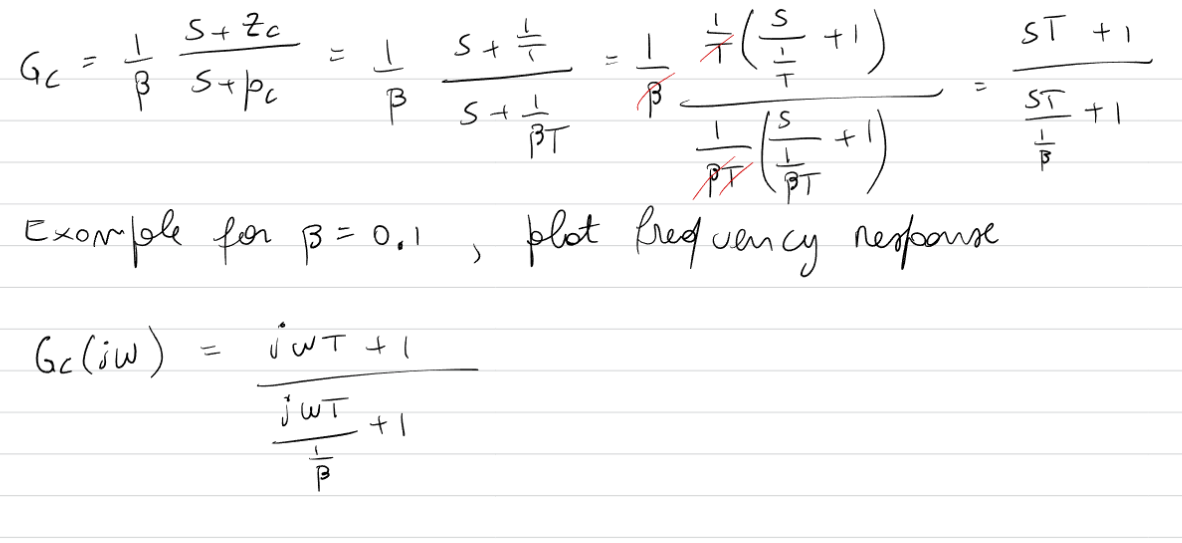 Gc = 1/β (s + zc)/(s + pc) = 1/β (s + 1/T)/(s + 1/(βT)) = 1/β (1/T (s/(1/T) + 1))/(1/(βT) (s/(1/(βT)) + 1)) = (sT + 1)/(sT/(1/β) + 1)
Example for β = 0.1 , plot frequency response
Gc(jw) = (jwT + 1)/(jwT/(1/β) + 1)